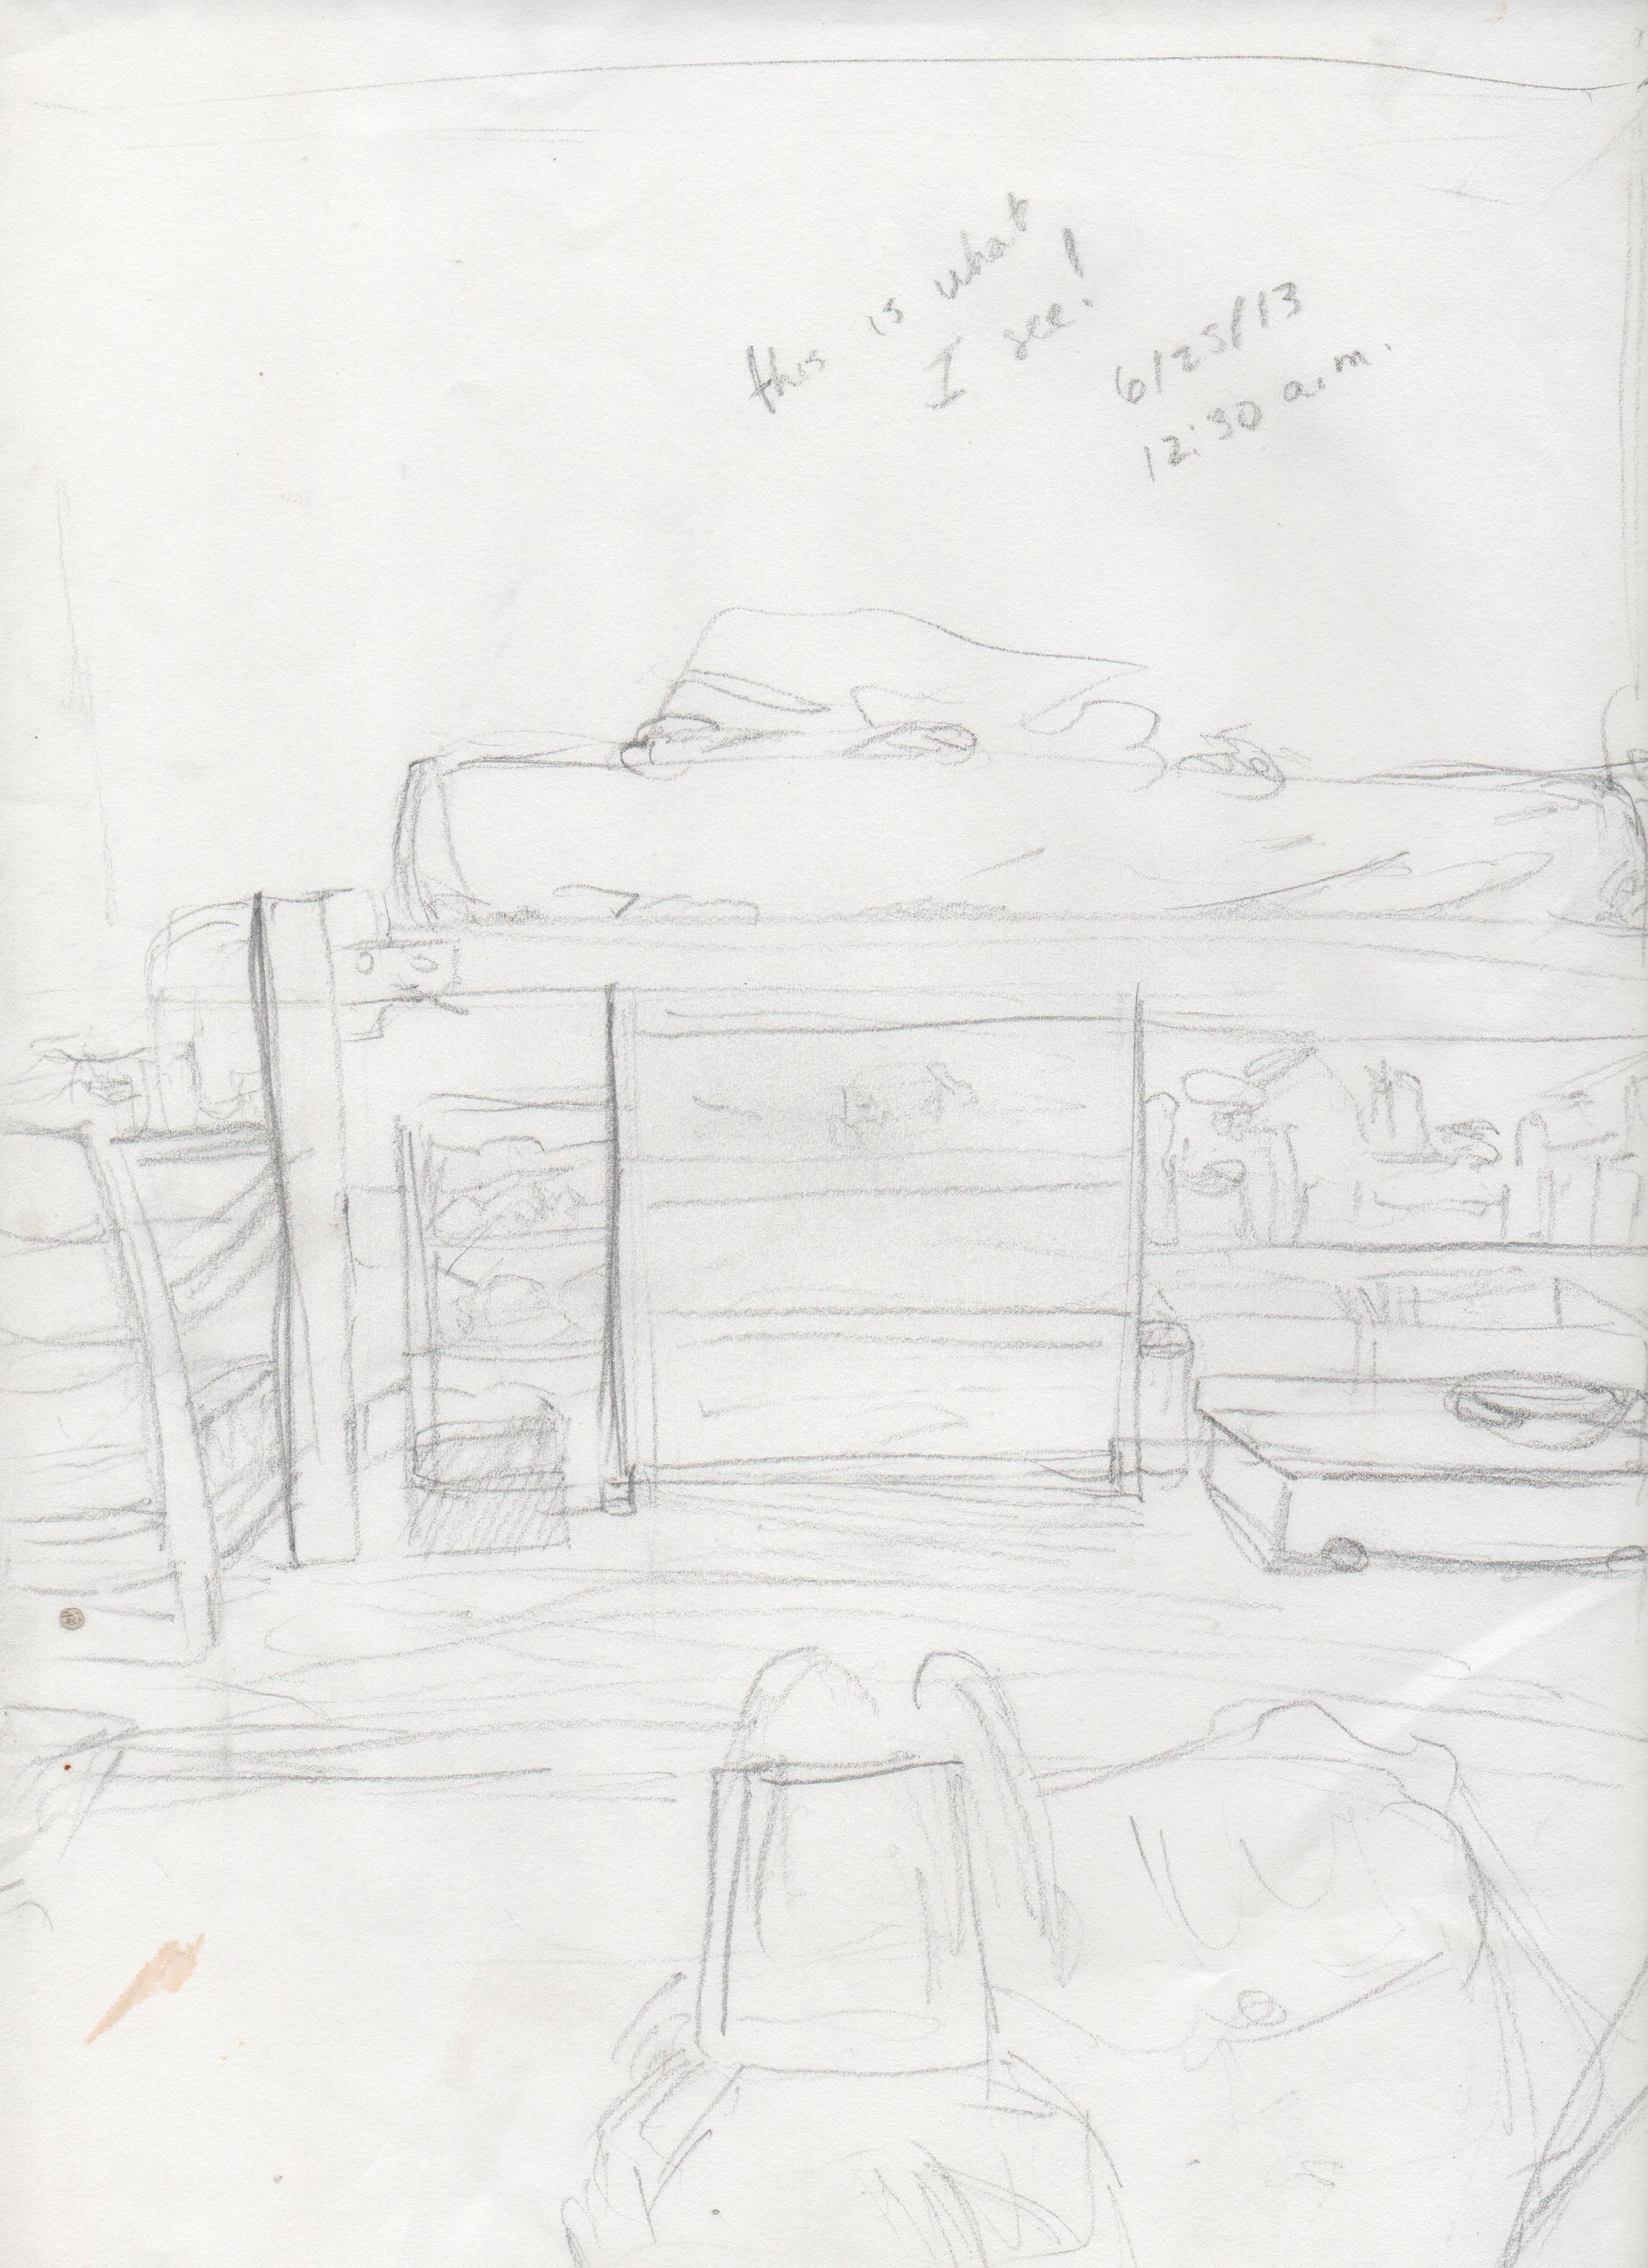 this is what
I see!
6/25/13
12:30 a.m.